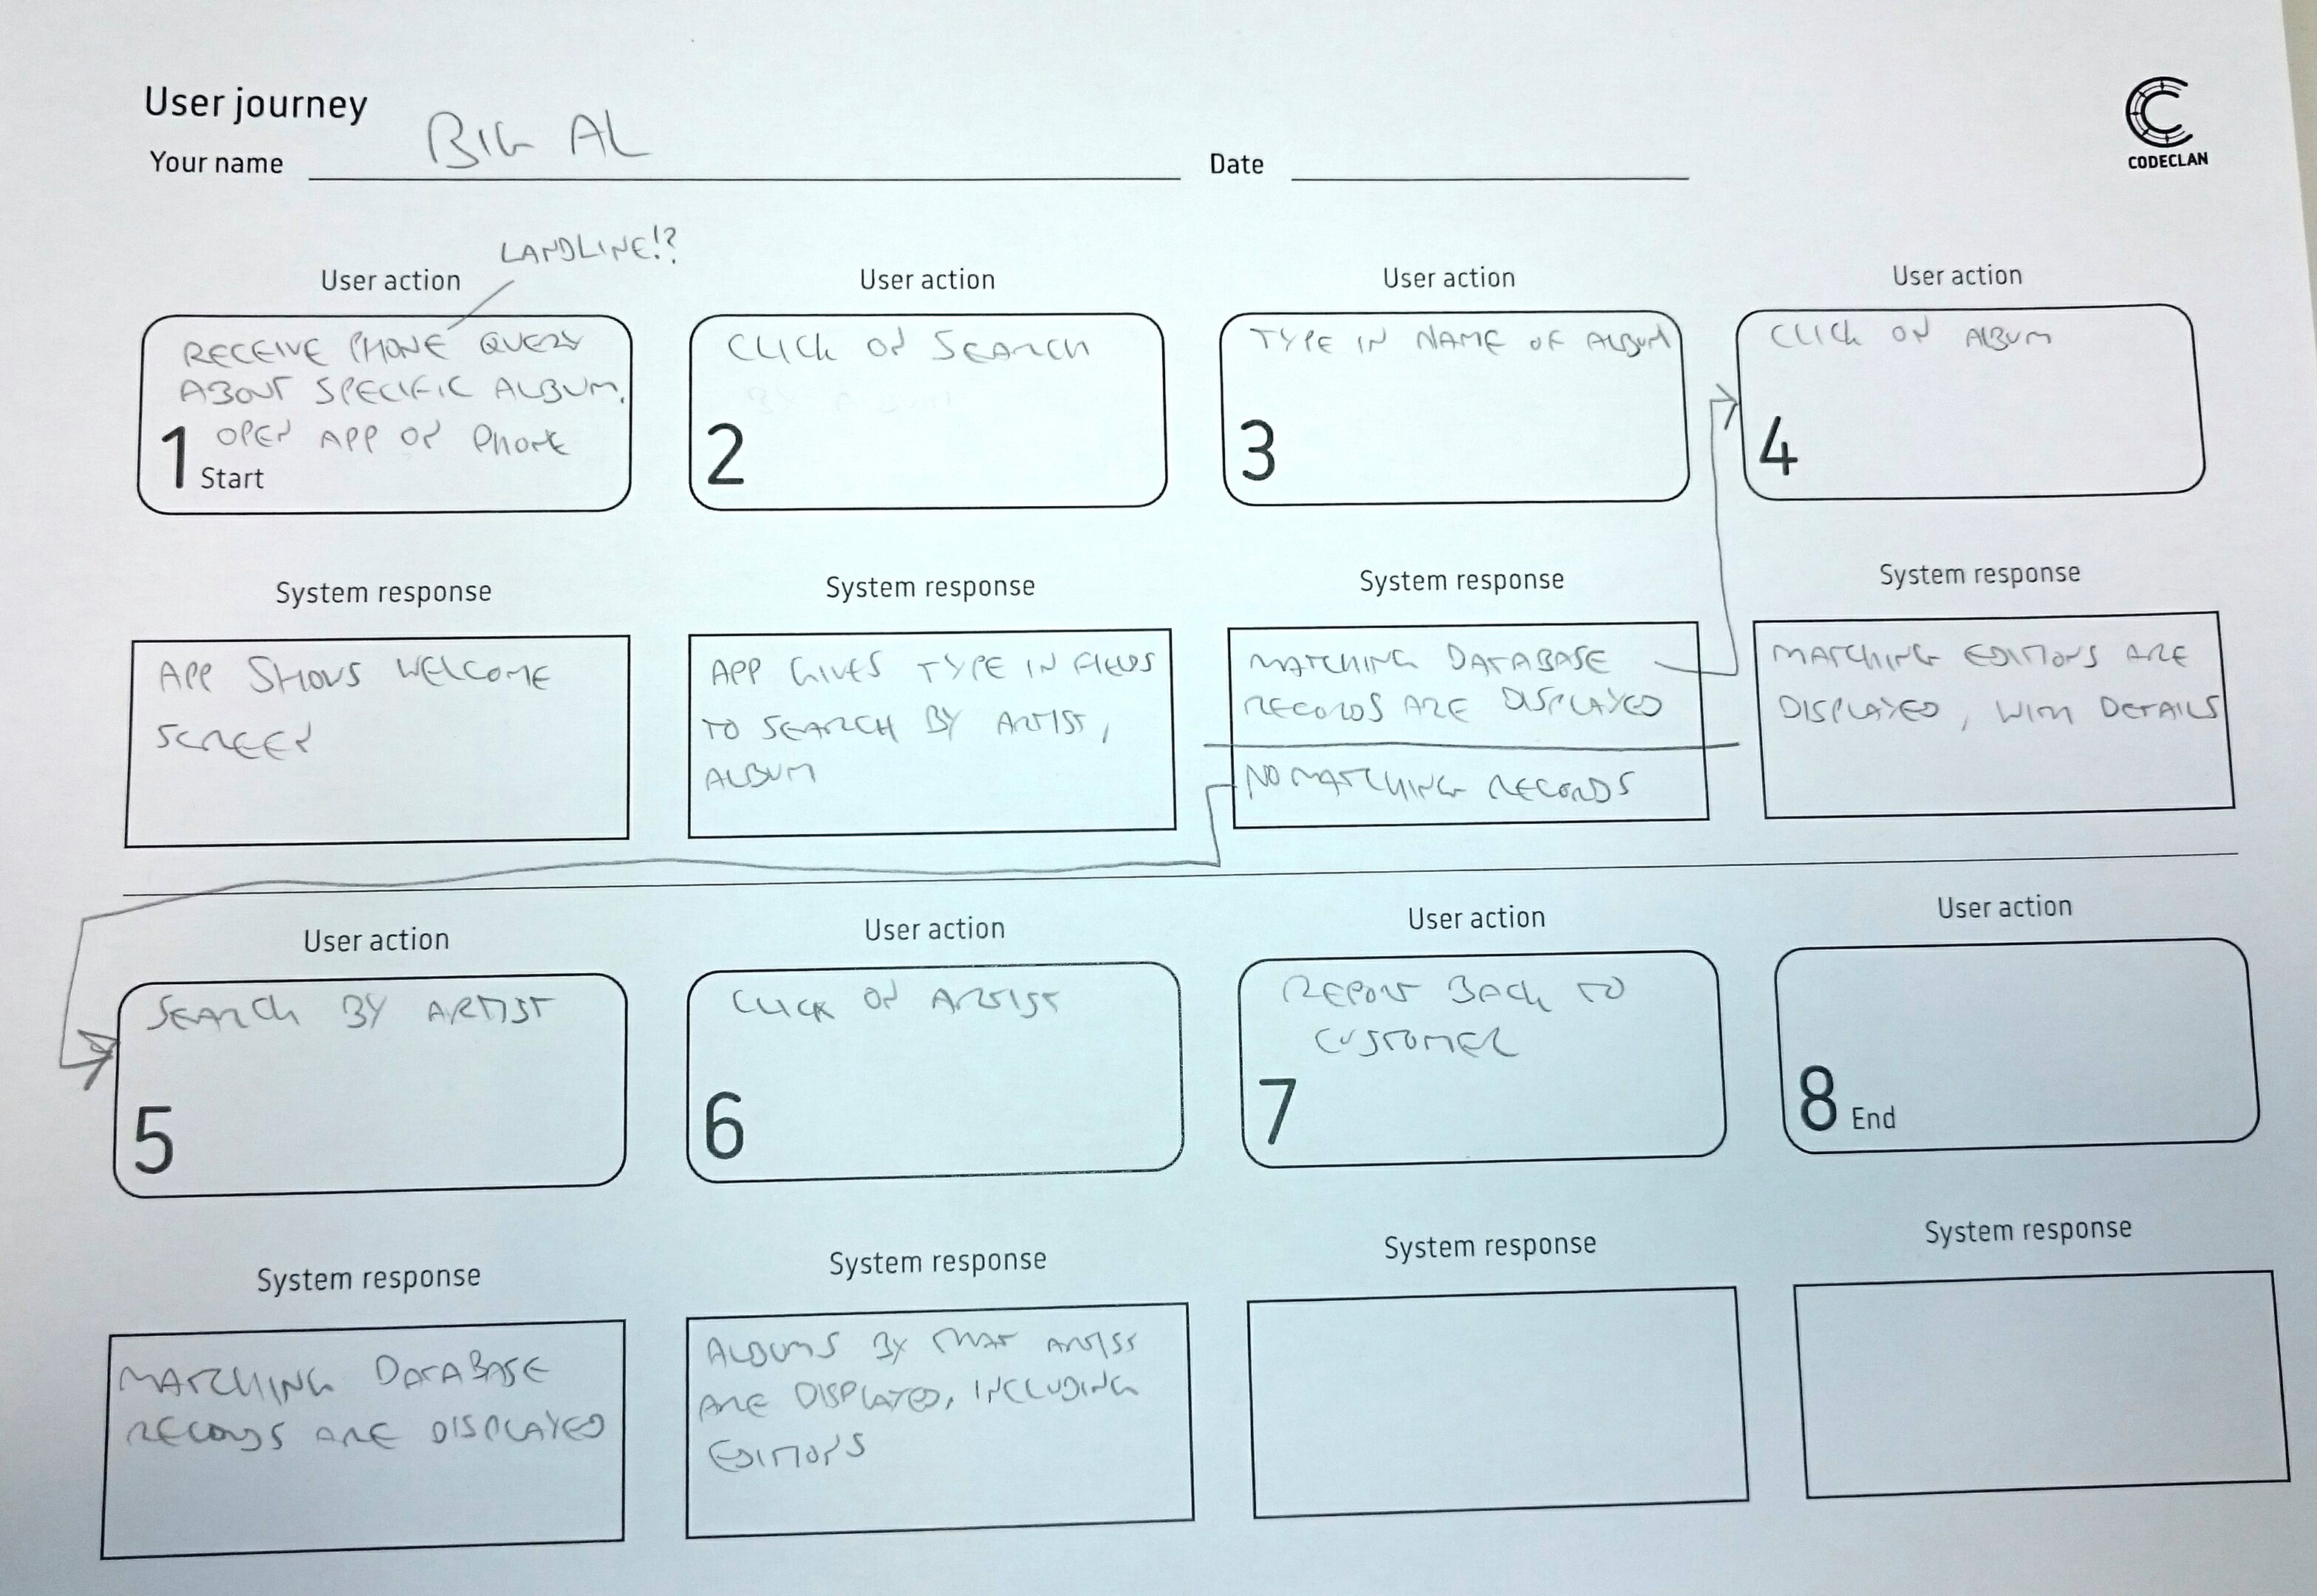 User journey
Your name BIG AL Date
CODECLAN
LANDLINE!?
User action
RECEIVE PHONE QUERY
ABOUT SPECIFIC ALBUM.
OPEN APP ON PHONE
1 Start
User action
CLICK ON SEARCH
2
User action
TYPE IN NAME OF ALBUM
3
User action
CLICK ON ALBUM
4
System response
APP SHOWS WELCOME
SCREEN
System response
APP GIVES TYPE IN FIELDS
TO SEARCH BY ARTIST,
ALBUM
System response
MATCHING DATABASE
RECORDS ARE DISPLAYED
NO MATCHING RECORDS
System response
MATCHING EDITIONS ARE
DISPLAYED, WITH DETAILS
User action
SEARCH BY ARTIST
5
User action
CLICK ON ARTIST
6
User action
REPORT BACK TO
CUSTOMER
7
User action
8 End
System response
MATCHING DATABASE
RECORDS ARE DISPLAYED
System response
ALBUMS BY THAT ARTIST
ARE DISPLAYED, INCLUDING
EDITIONS
System response
System response